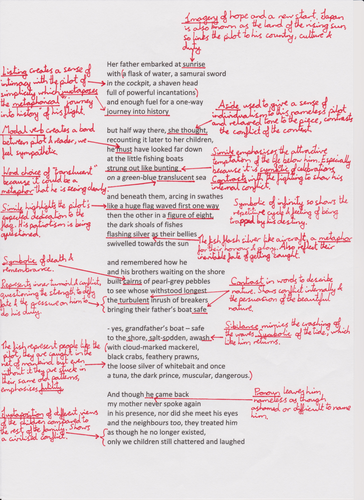 Imagery of hope and a new start. Japan
is also known as the land of the rising sun
so links the pilot to his country, culture &
duty
Her father embarked at sunrise
with a flask of water, a samurai sword
in the cockpit, a shaven head
full of powerful incantations
and enough fuel for a one-way
journey into history
Listing creates a sense of
intimacy with the pilot of
simplicity which
the metaphorical journey
into history of his flight
Aside used to give a sense of
individualism to this nameless pilot
and relaxed tone to the piece, contrasts
the conflict of the content
Modal verb creates a bond
between pilot & reader, we
feel sympathetic
but half way there, she thought,
recounting it later to her children,
he must have looked far down
at the little fishing boats
strung out like bunting
on a green-blue translucent sea
Simile emphasises the attractive
temptation of the life below him. Especially
because it is symbolic of celebrations
contrasts with the fighting to show his
internal conflict
Word choice of 'translucent'
because it could be a
metaphor that he is seeing clearly
Simile highlights the pilot's
expected dedication to the
flag. His patriotism is being
questioned.
and beneath them, arcing in swathes
like a huge flag waved first one way
then the other in a figure of eight,
the dark shoals of fishes
flashing silver as their bellies
swivelled towards the sun
Symbolic of infinity so shows the
repetitive cycle & feeling of being
trapped by his destiny.
The fish flash silver like as a metaphor
for honour and glory. Also reflect their
inevitable fate of getting caught
Symbolic of death &
remembrance.
and remembered how he
and his brothers waiting on the shore
built cairns of pearl-grey pebbles
to see whose withstood longest
the turbulent inrush of breakers
bringing their father's boat safe
Represent inner turmoil & conflict,
questioning the strength to fight
fate & the pressure on him to
do his duty.
Contrast in words to describe
nature. Shows conflict internally &
the persuasion of the beautiful
nature.
Sibilance mimics the crashing of
the waves. Symbolic of the tide, which
like him returns.
- yes, grandfather's boat – safe
to the shore, salt-sodden, awash
with cloud-marked mackerel,
black crabs, feathery prawns,
the loose silver of whitebait and once
a tuna, the dark prince, muscular, dangerous.
The fish represent people like the
pilot, they are caught in the
net of manhood but even
without it they are stuck in
their same old patterns,
emphasises futility
And though he came back
my mother never spoke again
in his presence, nor did she meet his eyes
and the neighbours too, they treated him
as though he no longer existed,
only we children still chattered and laughed
Pronoun leaves him
nameless as though
ashamed or difficult to name
him.
Juxtaposition of different views
of the children compared to
the rest of the family. Shows
a civilised conflict.